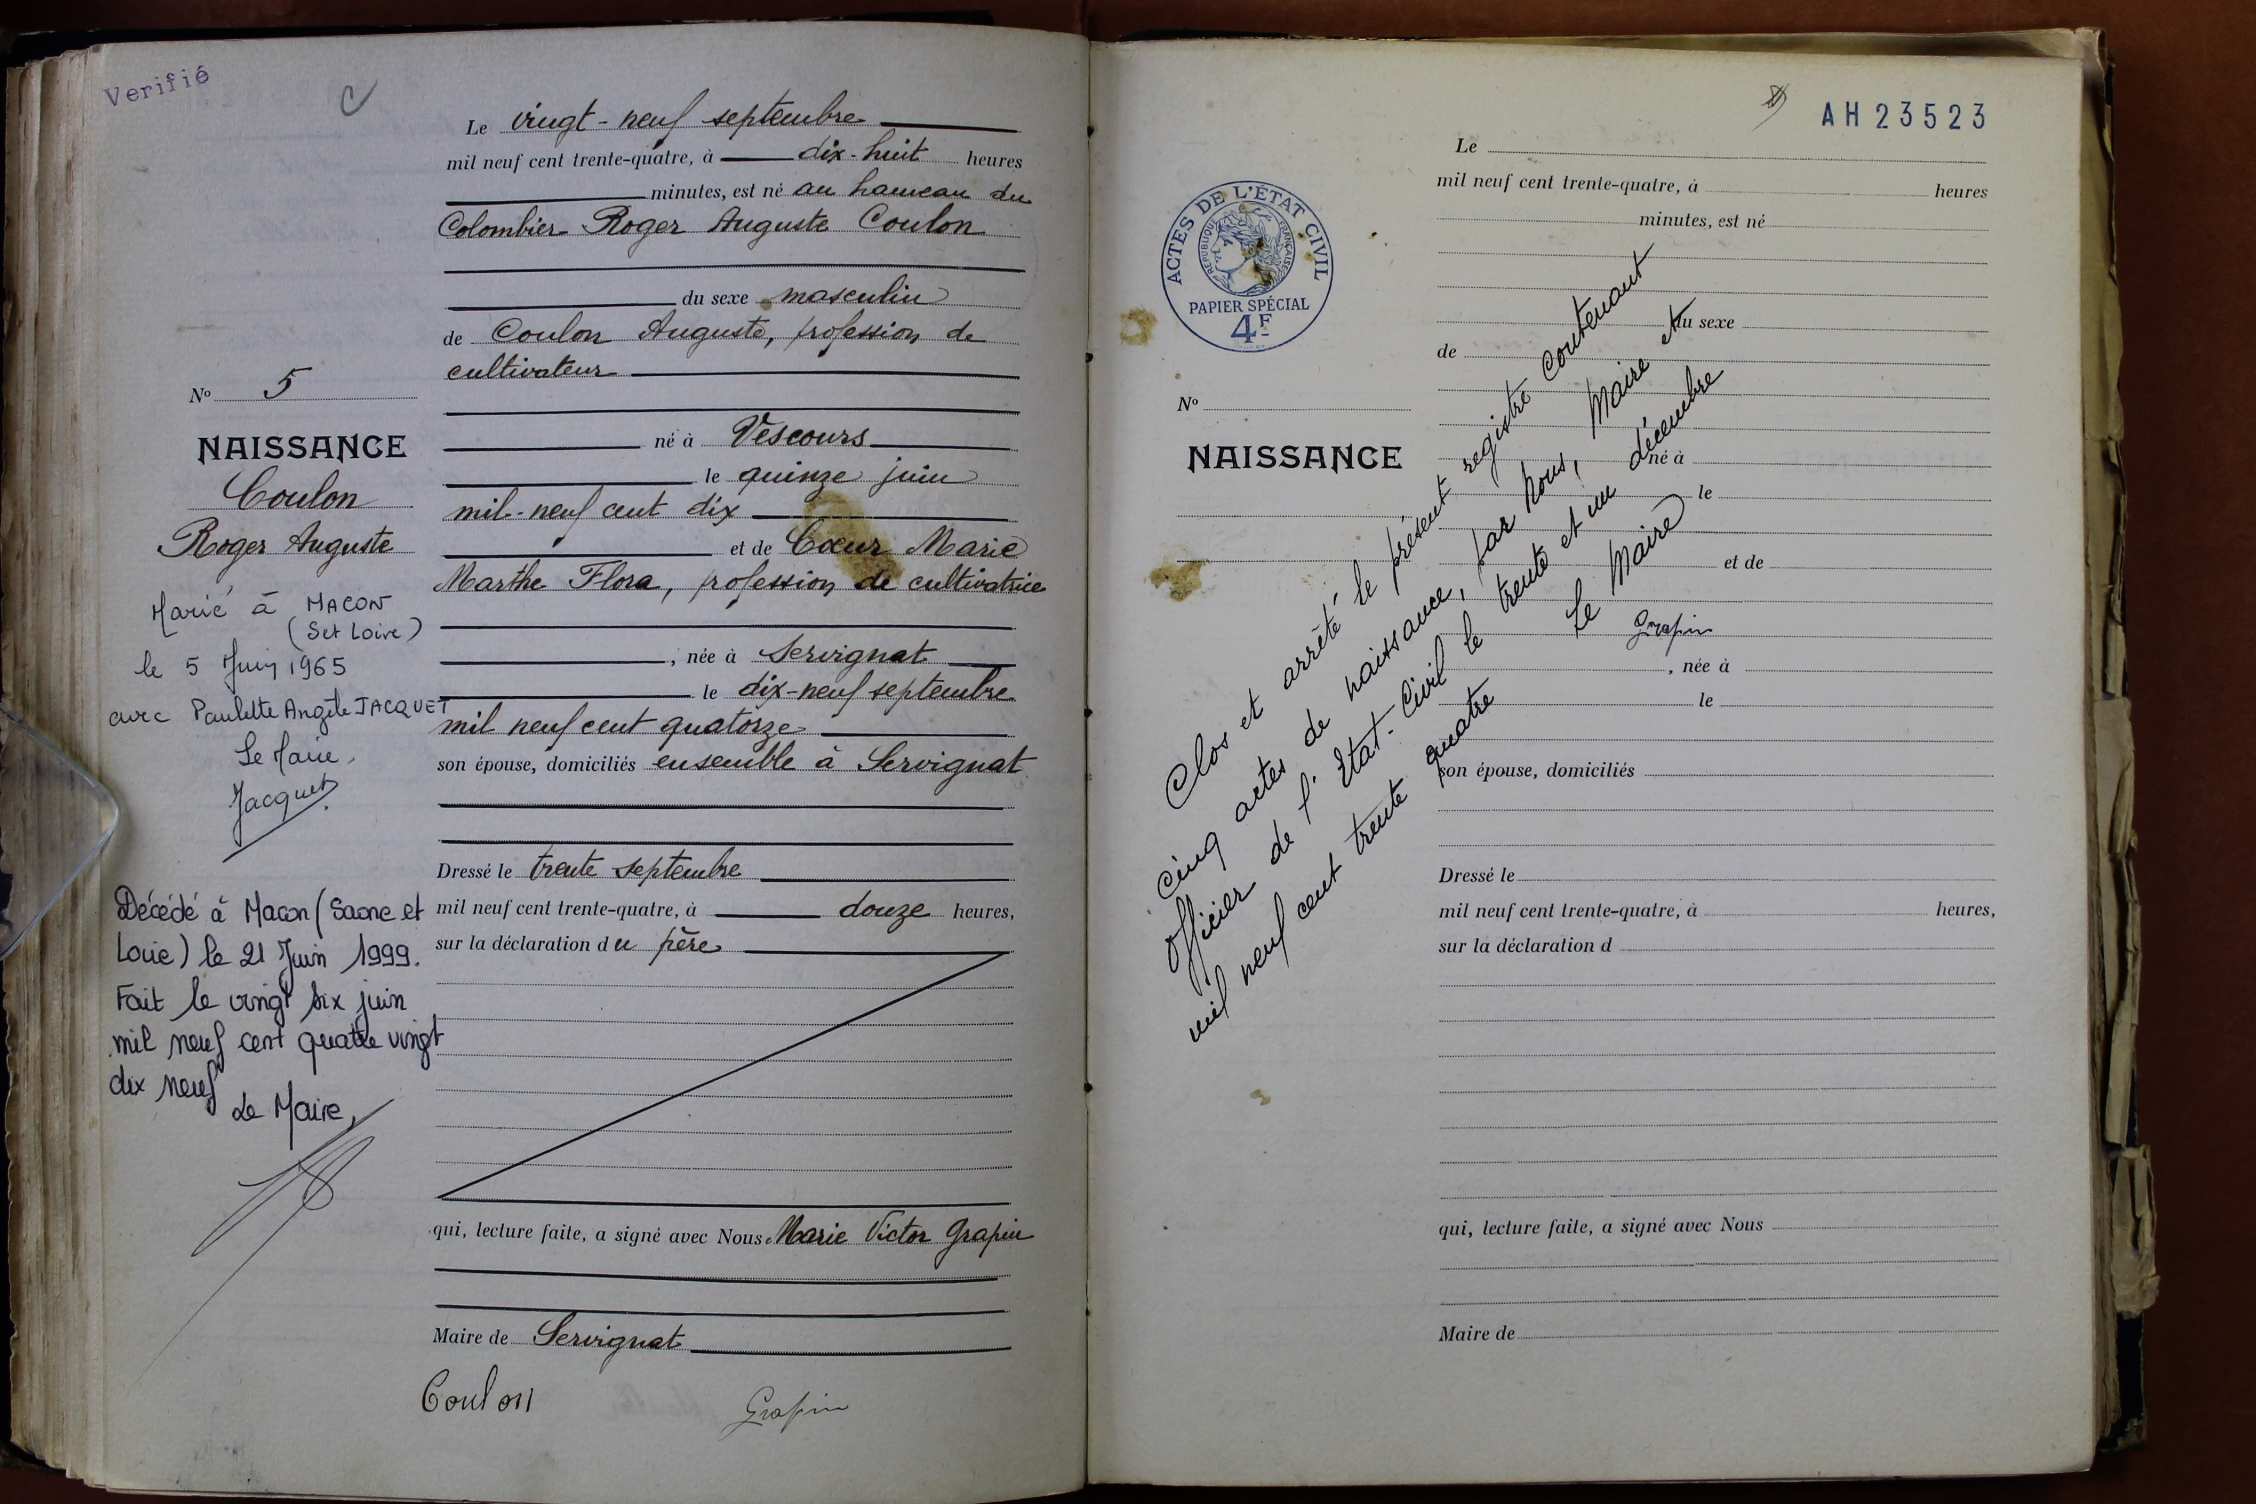 Verifié
C
Le vingt-neuf septembre
mil neuf cent trente-quatre, à dix-huit heures
minutes, est né au hameau du
Colombier Roger Auguste Coulon
du sexe masculin
de Coulon Auguste, profession de
cultivateur
né à Vescours
le quinze juin
mil-neuf cent dix
et de Cœur Marie
Marthe Flora, profession de cultivatrice
, née à Servignat
le dix-neuf septembre
mil neuf cent quatorze
son épouse, domiciliés ensemble à Servignat
Dressé le trente septembre
mil neuf cent trente-quatre, à douze heures,
sur la déclaration du père
qui, lecture faite, a signé avec Nous Marie Victor Grapin
Maire de Servignat
Coulon Grapin
No 5
NAISSANCE
Coulon
Roger Auguste
Marié à MACON
(S et Loire)
le 5 Juin 1965
avec Paulette Angèle JACQUET
Le Maire,
Jacquet
Décédé à Macon (Saone et
Loire) le 21 Juin 1999.
Fait le vingt six juin
mil neuf cent quatre vingt
dix neuf
Le Maire,
AH23523
ACTES DE L'ÉTAT CIVIL
RÉPUBLIQUE FRANÇAISE
PAPIER SPÉCIAL
4F
No
NAISSANCE
Le
mil neuf cent trente-quatre, à heures
minutes, est né
du sexe
de
né à
le
et de
, née à
le
son épouse, domiciliés
Dressé le
mil neuf cent trente-quatre, à heures,
sur la déclaration d
qui, lecture faite, a signé avec Nous
Maire de
Clos et arrêté le présent registre contenant
cinq actes de naissance, par Nous, Maire et
officier de l'Etat-Civil le trente et un décembre
mil neuf cent trente quatre
Le Maire
Grapin